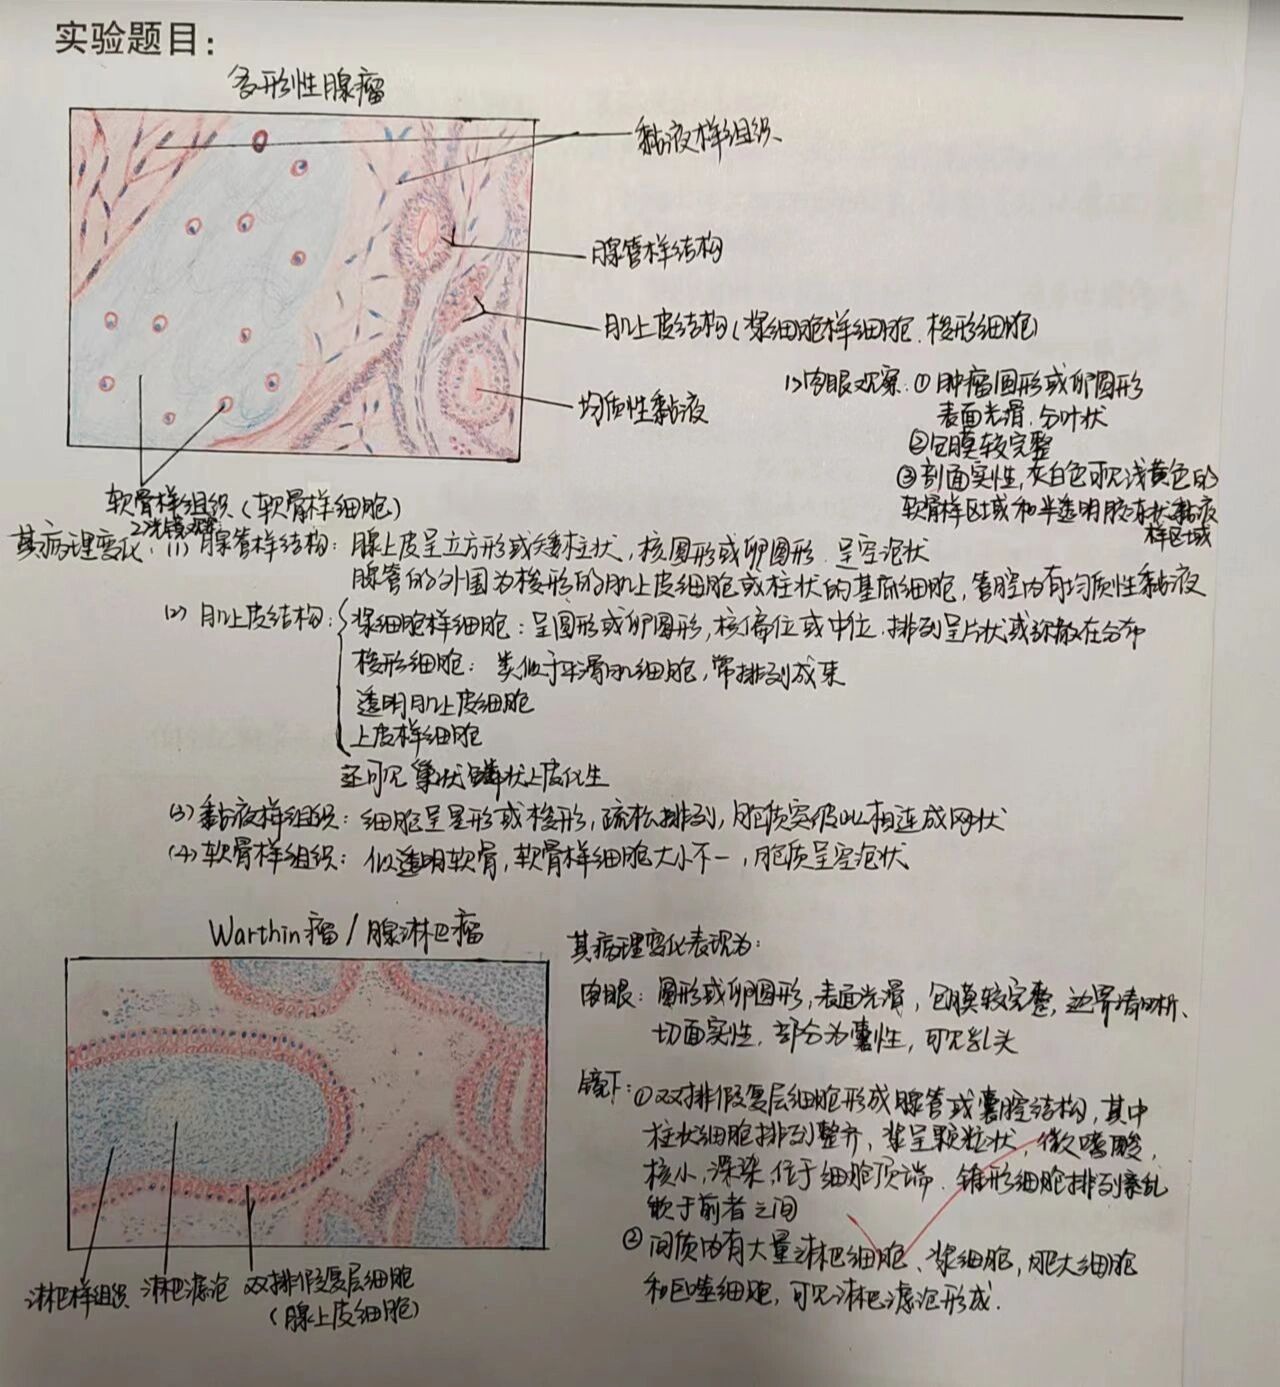 实验题目：
多形性腺瘤
黏液样组织
腺管样结构
肌上皮结构(浆细胞样细胞、梭形细胞)
均质性黏液
软骨样组织(软骨样细胞)
1)肉眼观察：①肿瘤圆形或卵圆形
表面光滑，分叶状
②包膜较完整
③剖面实性，灰白色可见浅黄色的
软骨样区域和半透明胶冻状黏液
样区域
2)光镜观察
其病理变化：(1)腺管样结构：腺上皮呈立方形或矮柱状，核圆形或卵圆形，呈空泡状
腺管的外围为梭形的肌上皮细胞或柱状的基底细胞，管腔内有均质性黏液
(2)肌上皮结构：浆细胞样细胞：呈圆形或卵圆形，核偏位或中位，排列呈片状或弥散在分布
梭形细胞：类似于平滑肌细胞，常排列成束
透明肌上皮细胞
上皮样细胞
还可见巢状鳞状上皮化生
(3)黏液样组织：细胞呈星形或梭形，疏松排列，胞质突彼此相连成网状
(4)软骨样组织：似透明软骨，软骨样细胞大小不一，胞质呈空泡状
Warthin瘤/腺淋巴瘤
淋巴样组织
淋巴滤泡
双排假复层细胞
(腺上皮细胞)
其病理变化表现为：
肉眼：圆形或卵圆形，表面光滑，包膜较完整，边界清晰、
切面实性，部分为囊性，可见乳头
镜下：①双排假复层细胞形成腺管或囊腔结构，其中
柱状细胞排列整齐，浆呈颗粒状，微嗜酸，
核小，深染，位于细胞顶端．锥形细胞排列紊乱
嵌于前者之间
②间质内有大量淋巴细胞、浆细胞，肥大细胞
和巨噬细胞，可见淋巴滤泡形成．